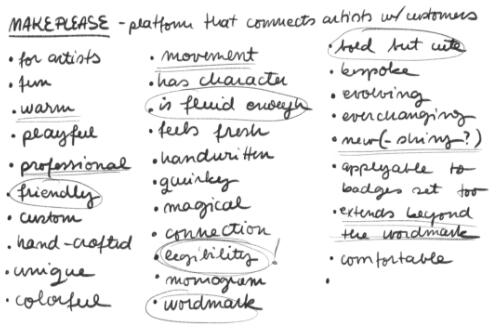 MAKEPLEASE - platform that connects artists w/ customers
• for artists
• fun
• warm
• playful
• professional
• friendly
• custom
• hand-crafted
• unique
• colorful
• movement
• has character
• is fluid enough
• feels fresh
• handwritten
• quirky
• magical
• connection
• legibility !
• monogram
• wordmark
• bold but cute
• bespoke
• evolving
• everchanging
• new (-shiny?)
• applyable to
badges set too
• extends beyond
the wordmark
• comfortable
•